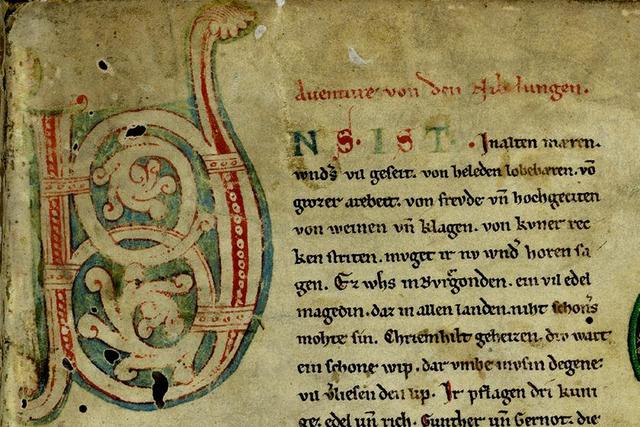 Auenture von den Nibelungen.
VNS. IST. In alten mæren.
wnds̾ vil geseit. von heleden lobebæren. võ
grozer arebeit. von frevde vñ hochgeciten
von weinen vñ klagen. von kvner rec
ken striten. mvget ir nv wnd̾ horen sa
gen. Ez whs in Bvrgonden. ein vil edel
magedin. daz in allen landen. niht schons̾
mohte sin. Chriemhilt geheizen. div wart
ein schone wip. dar vmbe mvsin degene
vil v̾liesen den lip. Ir pflagen dri kuni
ge. edel vñ rich. Gunther vñ Gernot. die